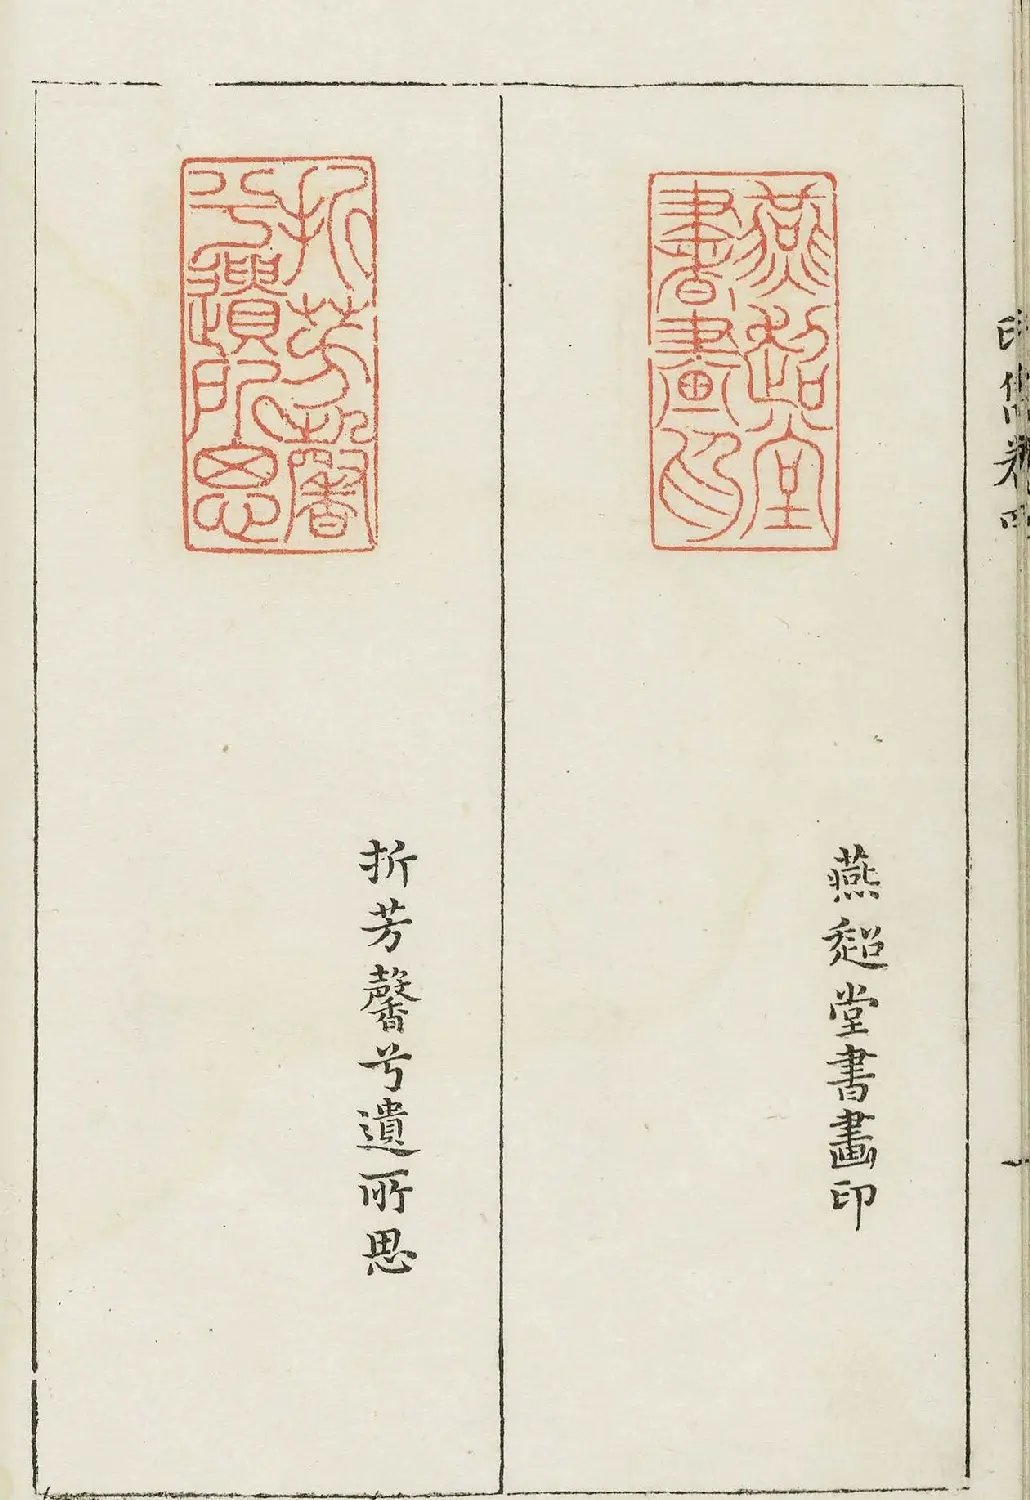 燕超堂書畫印
燕超堂書畫印
折芳馨兮遺所思
折芳馨兮遺所思
四
一